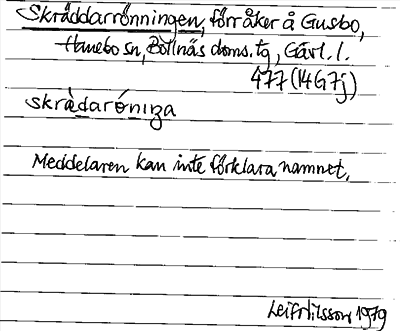 Skräddarrönningen, förr åker å Gusbo,
Hanebo sn, Bollnäs doms. tg, Gävl. l.
477 (14G7j)
skràdaróniga
Meddelaren kan inte förklara namnet.
Leif Nilsson 1979